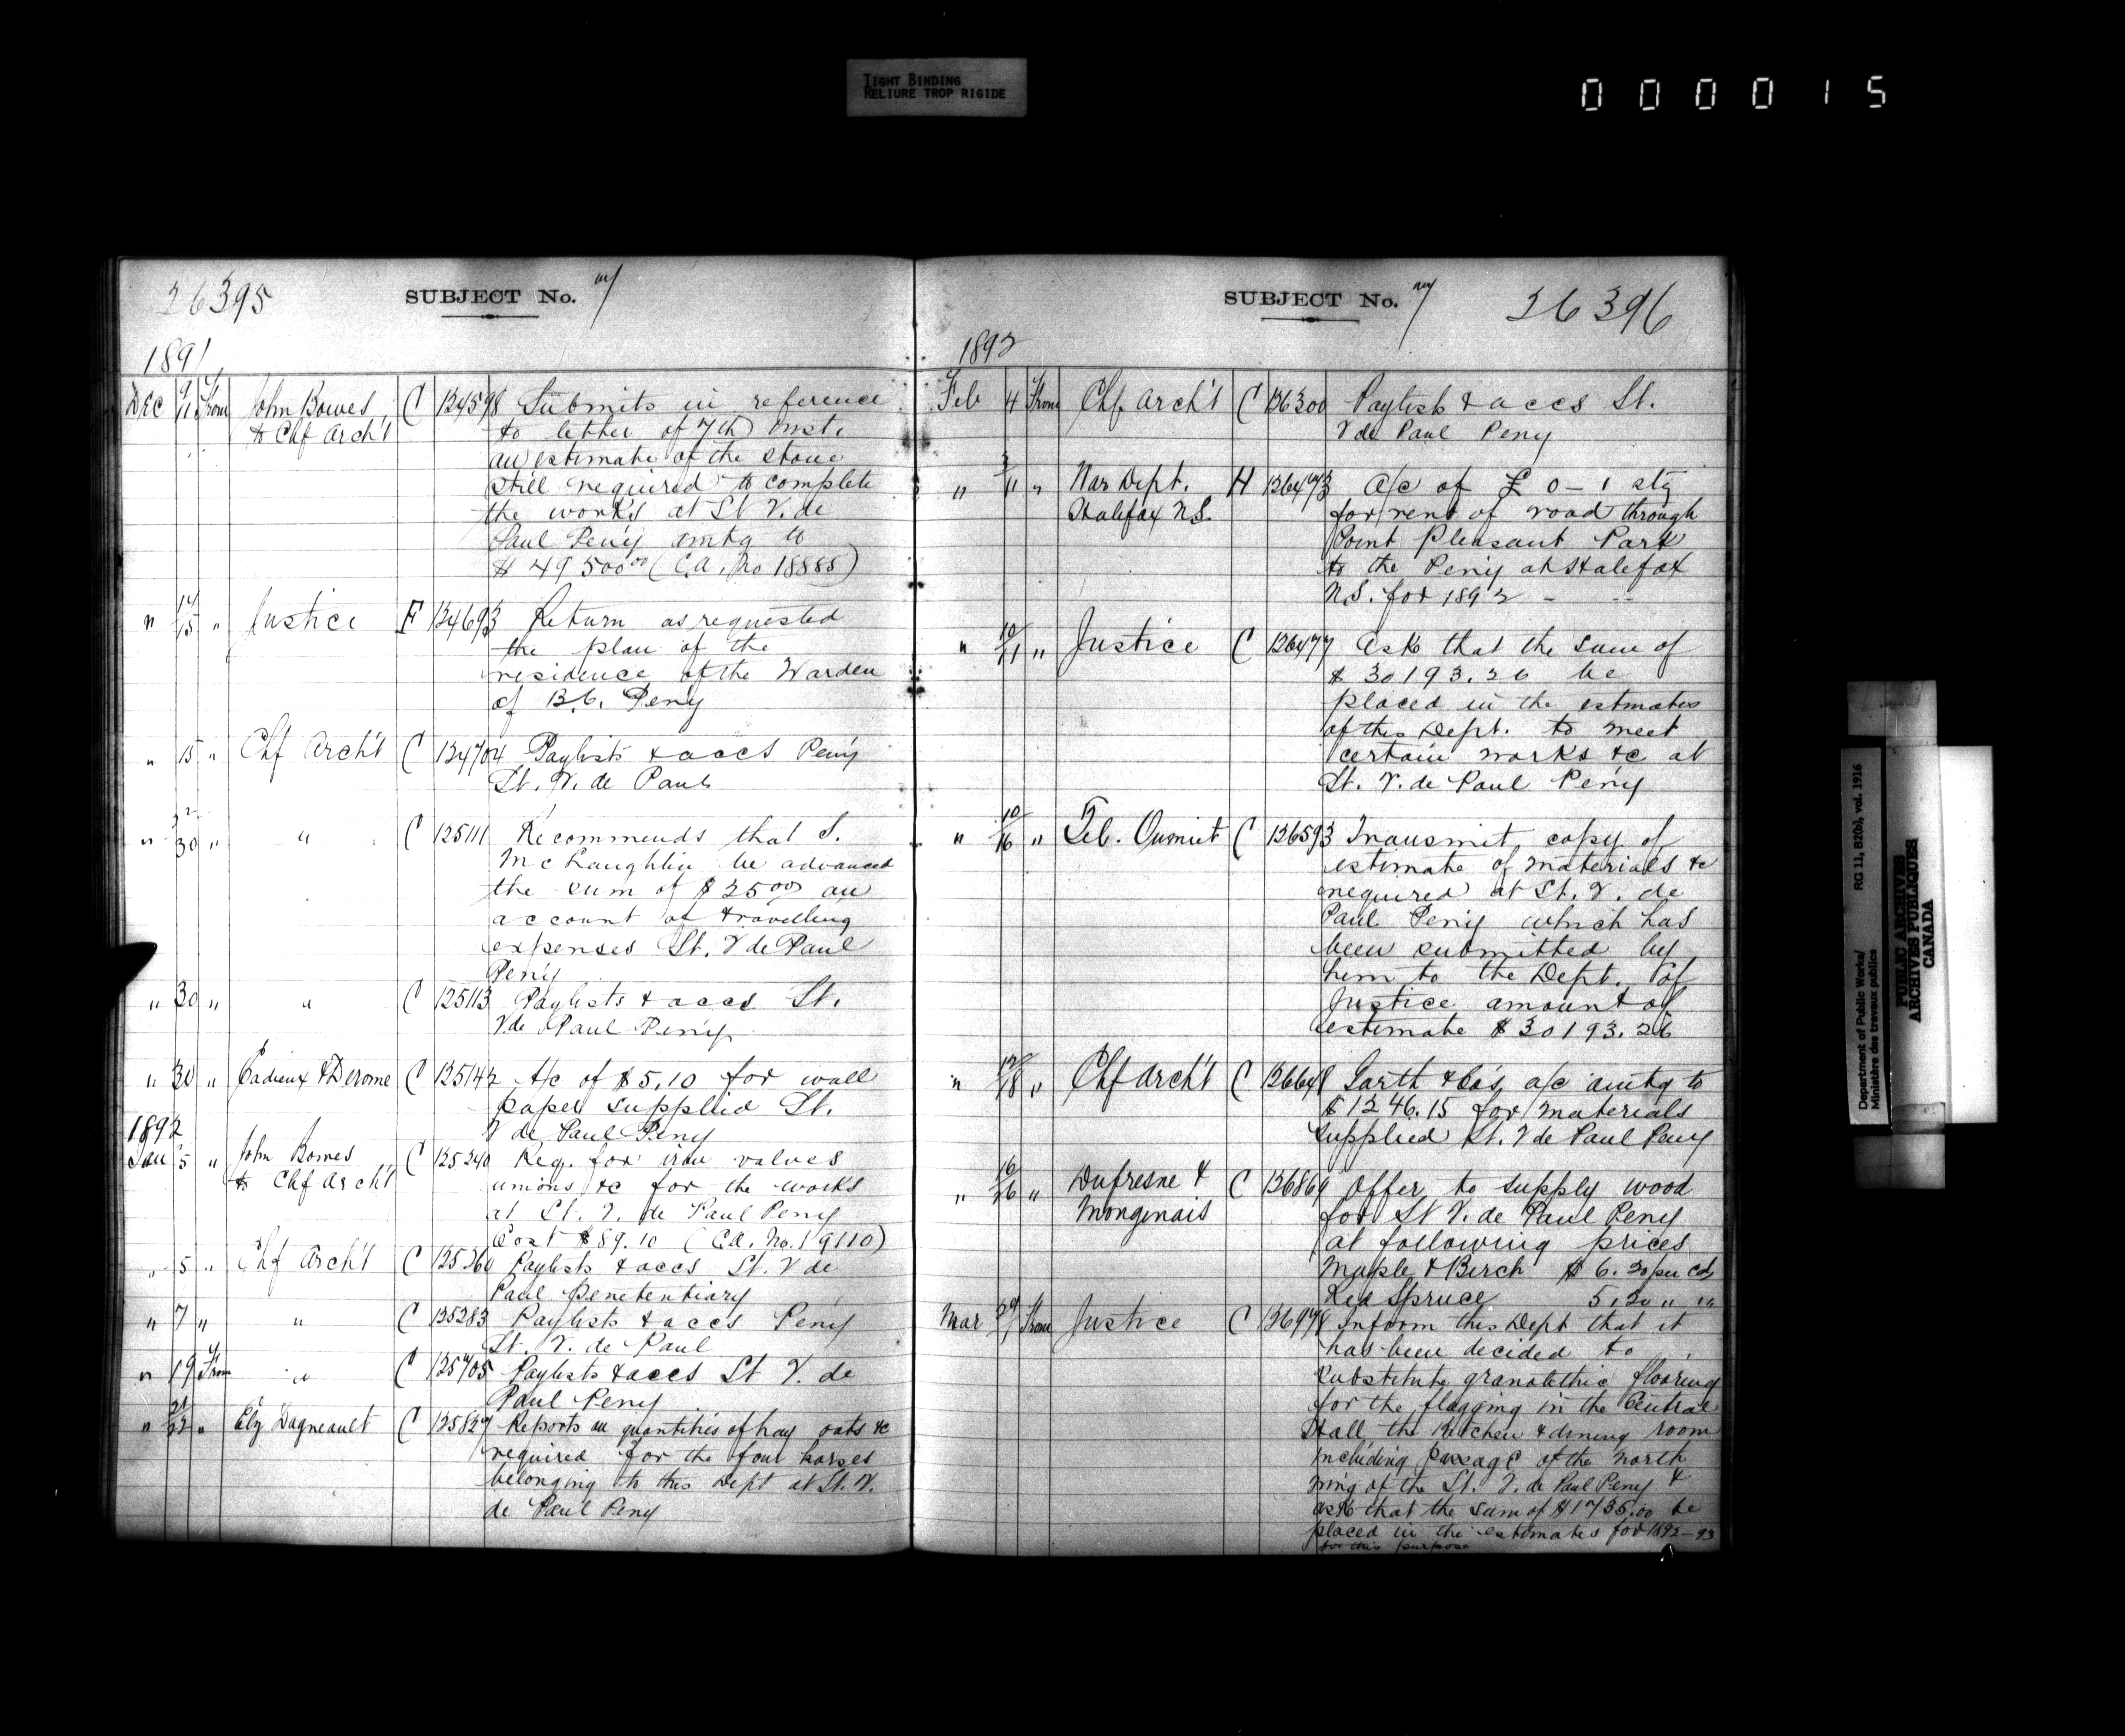 TIGHT BINDING
RELIURE TROP RIGIDE
000015
26395
SUBJECT No. 7
1891
Dec 9/11 From John Bowes C 134598 Submits in reference
to Chf Arch't to letter of 7th inst.
an estimate of the stone
still required to complete
the works at St V. de
Paul Peny amtg to
$ 49 500.00 (C.A. No 18885)
" 14/15 " Justice F 134693 Return as requested
the plan of the
residence of the Warden
of B.C. Peny
" 15 " Chf Arch't C 134704 Paylists & accs Peny
St. V. de Paul
" 30 " " C 135111 Recommends that S.
McLaughlin be advanced
the sum of $ 25 00 on
account of travelling
expenses St. V de Paul
Peny
" 30 " " C 135113 Paylists & accs St.
V. de Paul Peny
" 30 " Cadieux & Derome C 135142 A/c of $ 5.10 for wall
paper supplied St.
V de Paul Peny
1892
Jan 5 " John Bowes C 135240 Req. for iron valves
to Chf Arch't unions &c for the works
at St. V. de Paul Peny
Cost $ 89.10 (C.A. No. 19110)
" 5 " Chf Arch't C 135260 Paylists & accs St. V de
Paul Penetentiary
" 7 " " C 135283 Paylists & accs Peny
St. V. de Paul
" 19 From " C 135705 Paylists & accs St V. de
Paul Peny
" 21/22 " Elz Dagneault C 135827 Reports on quantities of hay oats &c
required for the four horses
belonging to this Dept at St. V.
de Paul Peny
SUBJECT No. 7
36396
1892
Feb 4 From Chf Arch't C 136300 Paylists & accs St.
V de Paul Peny
" 3/11 " War Dept. H 136473 A/c of £ 0 - 1 stg
Halifax N.S. for rent of road through
Point Pleasant Park
to the Peny at Halifax
N.S. for 1892 -
" 10/11 " Justice C 136477 Ask that the sum of
$ 30193.26 be
placed in the estmates
of this Dept. to meet
certain works &c at
St. V. de Paul Peny
" 10/16 " Tel. Ouimet C 136593 Transmit copy of
estimate of materials &c
required at St. V. de
Paul Peny which has
been submitted by
him to the Dept. of
Justice amount of
estimate $ 30193.26
" 12/18 " Chf Arch't C 136648 Garth & Co's a/c amtg to
$ 1246.15 for materials
supplied St. V de Paul Peny
" 16/26 " Dufresne & C 136869 Offer to supply wood
Mongenais for St V. de Paul Peny
at following prices
Maple & Birch $ 6.20 per cd
Red Spruce 5.20 " "
Mar 29/1 From Justice C 136978 Inform this Dept that it
has been decided to
substitute granolithic flooring
for the flagging in the Central
Hall the Kitchen & dining room
including passage of the north
wing of the St. V. de Paul Peny &
ask that the sum of $ 1735.00 be
placed in the estimates for 1892-93
for this purpose
Department of Public Works/ RG 11, B2(b), vol. 1916
Ministère des travaux publics
PUBLIC ARCHIVES
ARCHIVES PUBLIQUES
CANADA